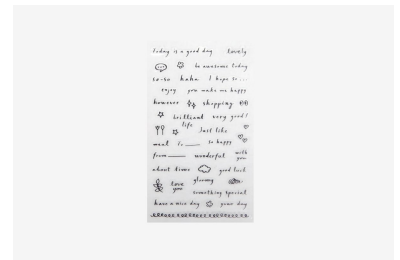 today is a good day lovely
be awesome today
so-so haha I hope so...
enjoy you make me happy
however shopping
brilliant very good!
life
Just like
meat to so happy
from wonderful with you
about time good luck
love you gloomy
something special
have a nice day your day